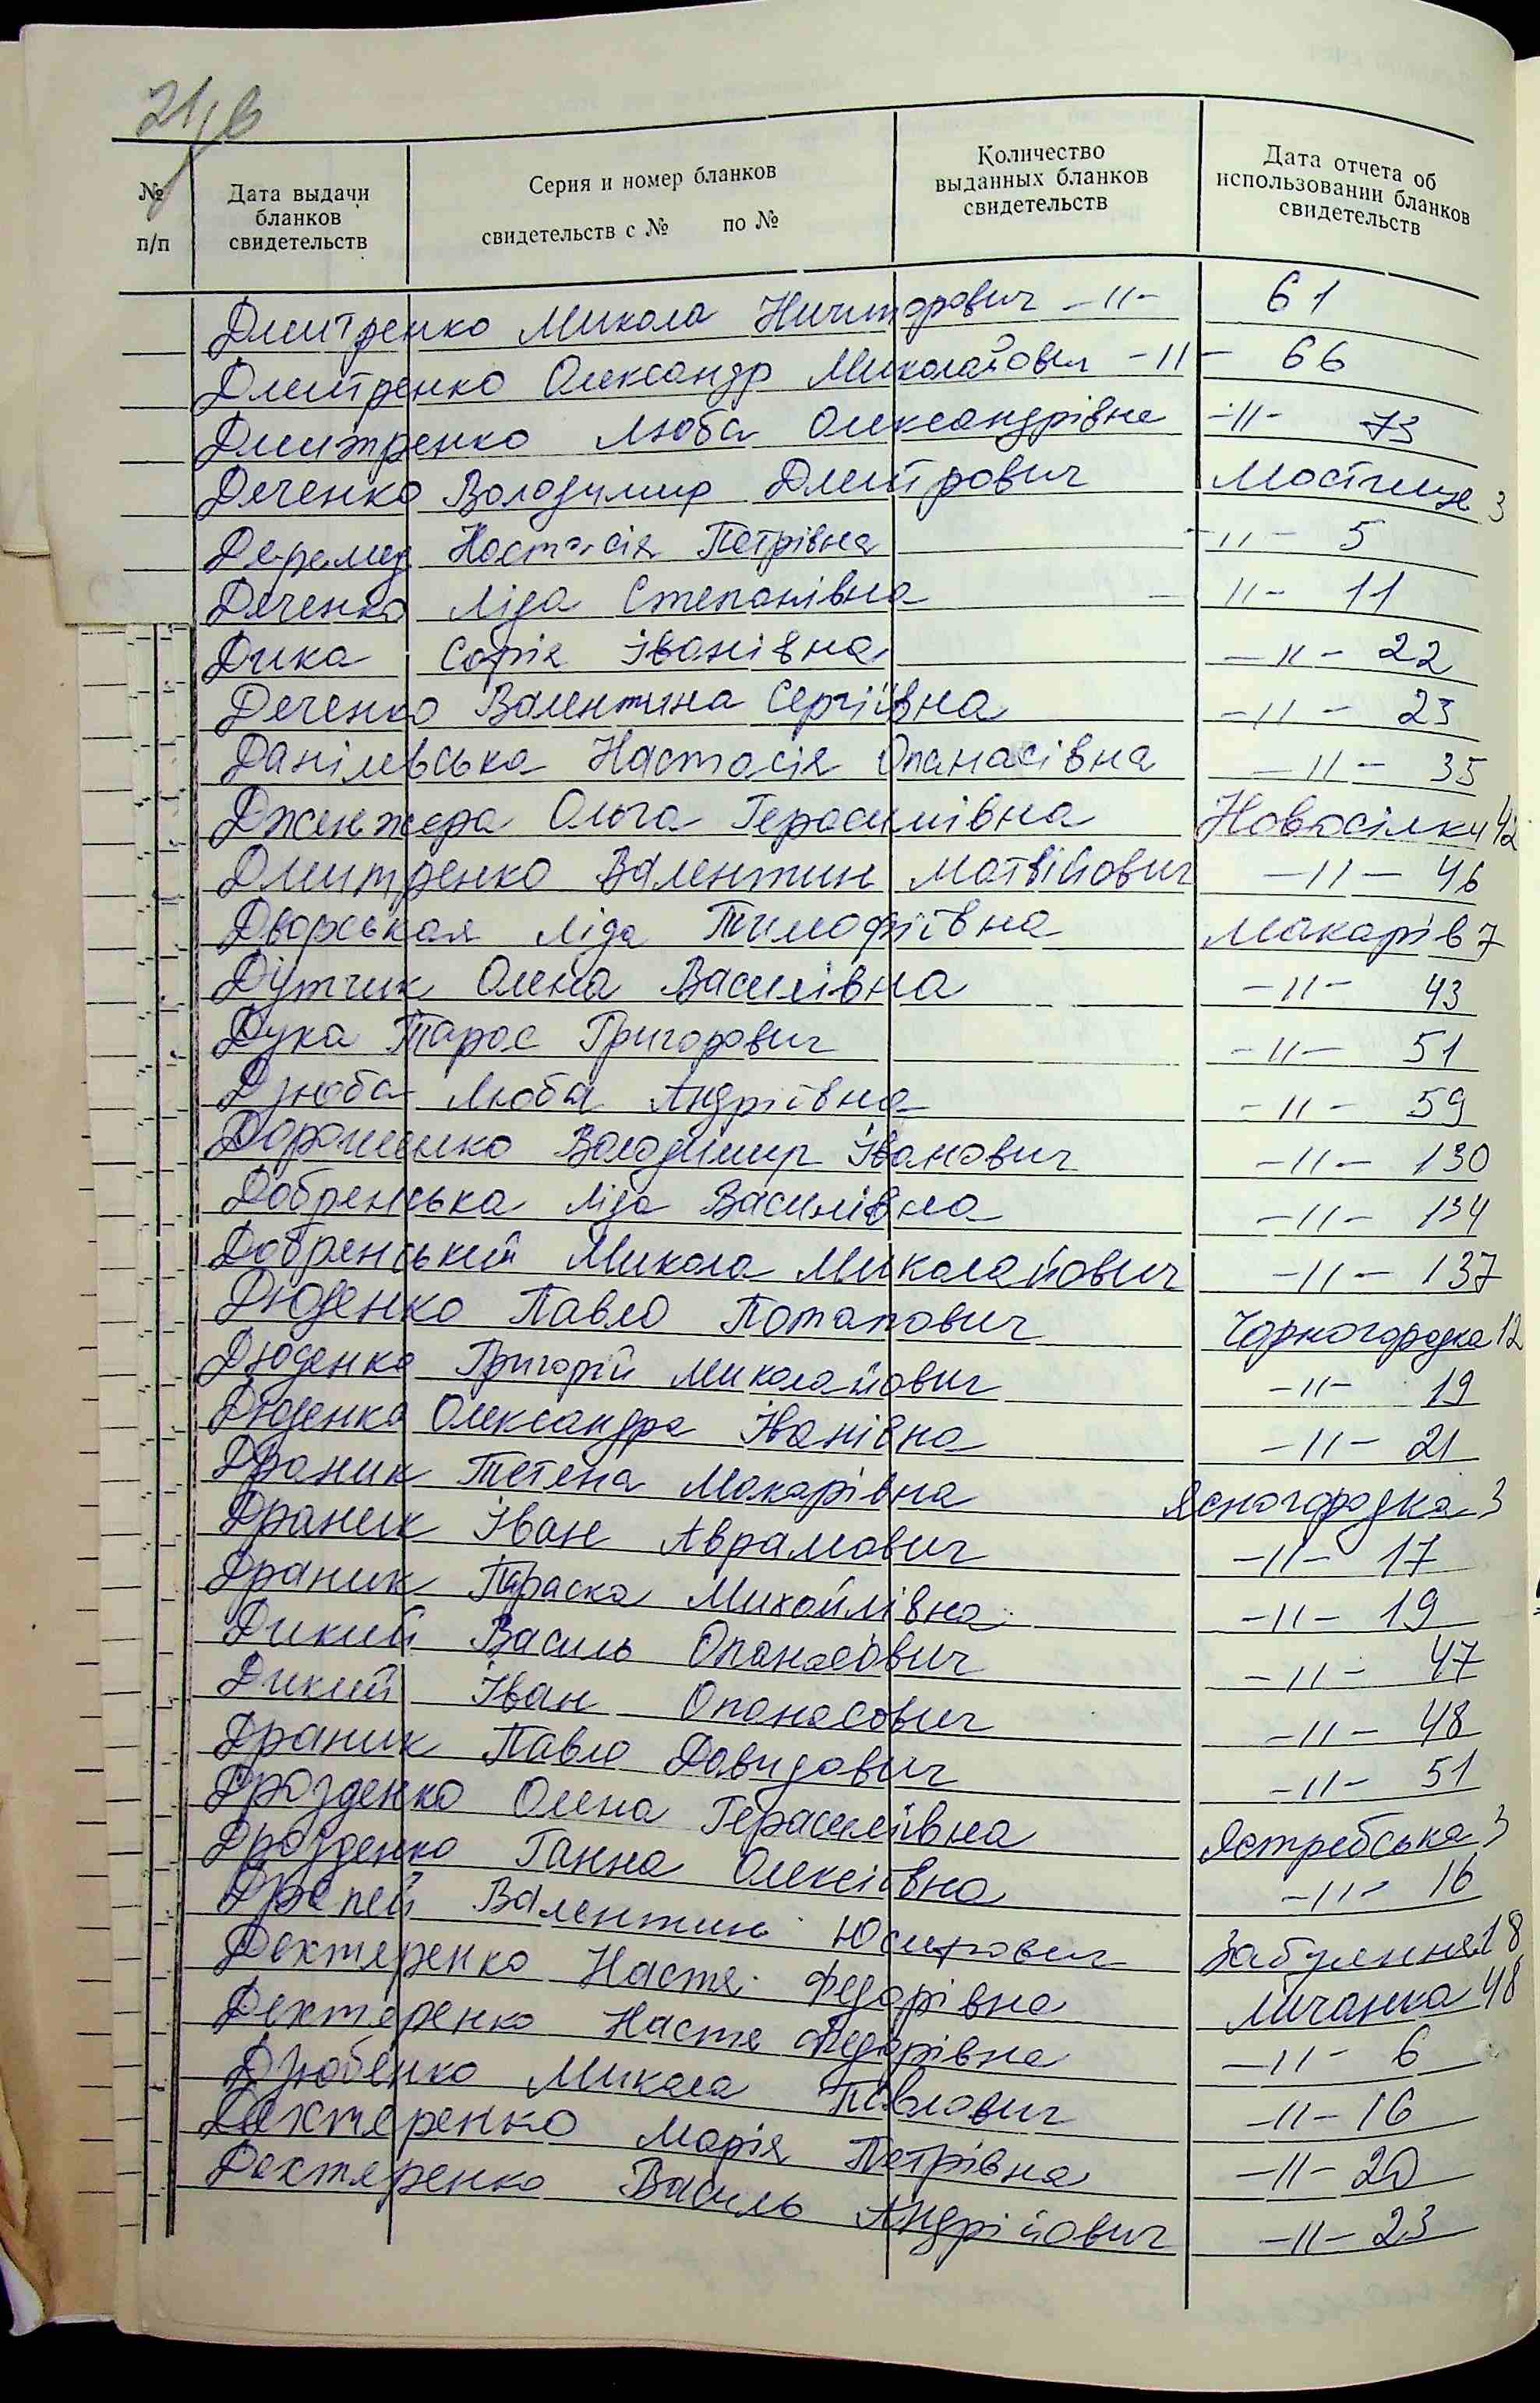 21/в
№ п/п
Дата выдачи бланков свидетельств
Серия и номер бланков свидетельств с № по №
Количество выданных бланков свидетельств
Дата отчета об использовании бланков свидетельств
Дмитренко Микола Ничипорович -11- 61
Дмитренко Олександр Миколайович -11- 66
Дмитренко Люба Олександрівна -11- 73
Деченко Володимир Дмитрович Мостище 3
Деремед Настасія Петрівна -11- 5
Деченко Ліда Степанівна -11- 11
Дика Софія Іванівна -11- 22
Деченко Валентина Сергіївна -11- 23
Данілевська Настасія Опанасівна -11- 35
Дженжера Ольга Герасимівна Новосілки 42
Дмитренко Валентин Матвійович -11- 46
Дворська Ліда Тимофіївна Макарів 7
Дутчик Олена Василівна -11- 43
Дука Тарас Григорович -11- 51
Дзюба Люба Андріївна -11- 59
Дорошенко Володимир Іванович -11- 130
Добренська Ліда Василівна -11- 134
Добренський Микола Миколайович -11- 137
Дюденко Павло Потапович Чорногородка 12
Дюденко Григорій Миколайович -11- 19
Дюденко Олександра Іванівна -11- 21
Драник Тетяна Макарівна Ясногородка 3
Драник Іван Аврамович -11- 17
Драник Параска Михайлівна -11- 19
Дикий Василь Опанасович -11- 47
Дикий Іван Опанасович -11- 48
Драник Павло Давидович -11- 51
Дрозденко Олена Герасимівна Ястребська 3
Дрозденко Ганна Олексіївна -11- 16
Драпей Валентин Юсипович Забуяння 18
Дехтяренко Настя Федорівна Личанка 48
Дехтяренко Настя Федорівна -11- 6
Дзюбенко Микола Павлович -11- 16
Дехтяренко Марія Петрівна -11- 20
Дехтяренко Василь Андрійович -11- 23